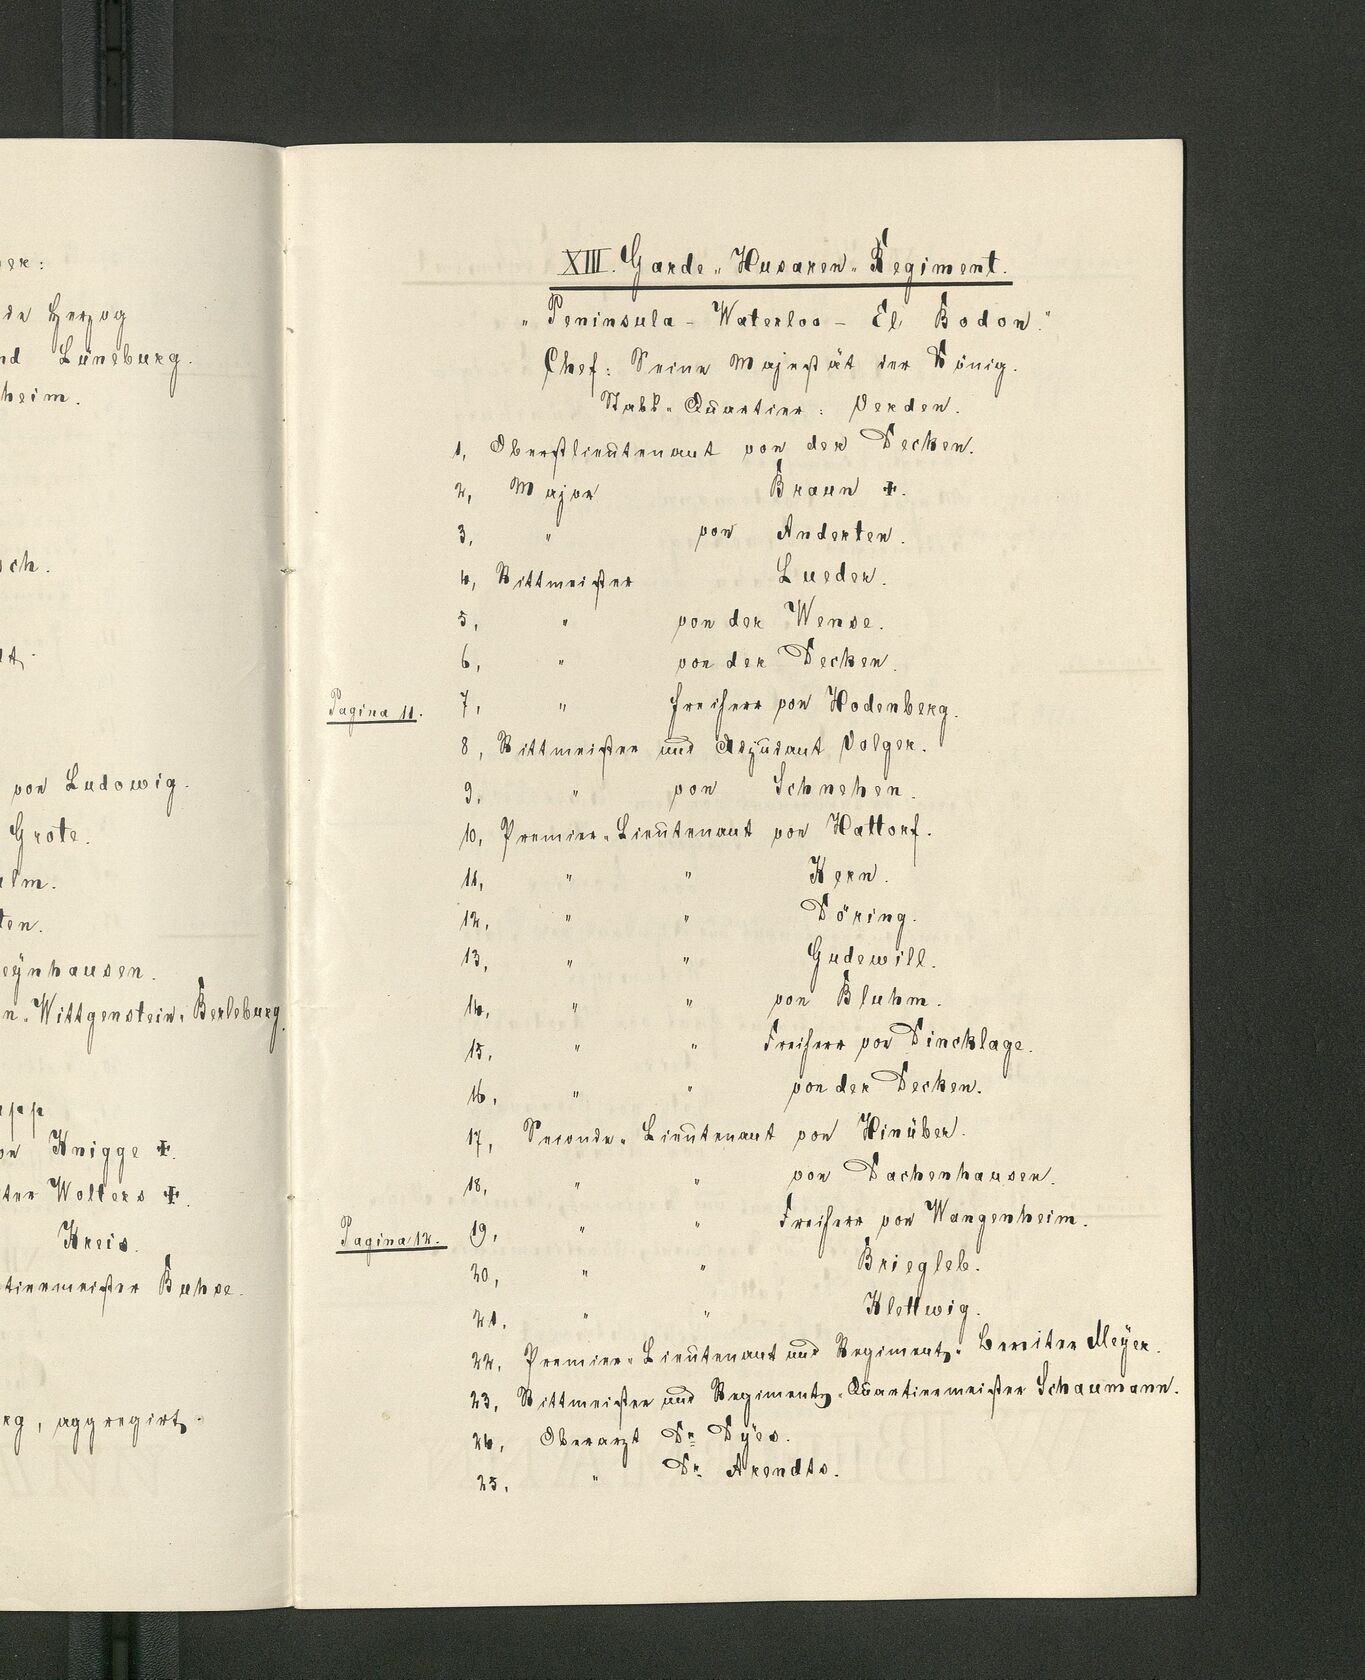 er:
de Herzog
nd Lüneburg.
heim.
sch.
von Ludowig.
Grote.
alm.
ten.
eÿnhausen.
n-Wittgenstein-Berleburg.
app
on Knigge ✠.
ter Wolters ✠.
Kreis.
tiermeister Buhse.
rg, aggregirt.
XIII. Garde-Husaren-Regiment.
"Peninsula - Waterloo - El Bodon."
Chef: Seine Majestät der König.
Stabs-Quartier: Verden.
1, Oberstlieutenant von der Decken.
2, Major Braun ✠.
3, " von Anderten.
4, Rittmeister Lueder.
5, " von der Wense.
6, " von der Decken.
Pagina 11. 7, " Freiherr von Hodenberg.
8, Rittmeister und Adjudant Volger.
9, " von Schnehen.
10, Premier-Lieutenant von Hattorf.
11, " " Kern.
12, " " Döring.
13, " " Gudewill.
14, " " von Bluhm.
15, " " Freiherr von Dincklage.
16, " " von der Decken.
17, Seconde-Lieutenant von Hinüber.
18, " " von Dachenhausen.
Pagina 12. 19, " " Freiherr von Wangenheim.
20, " " Briegleb.
21, " " Klettwig.
22, Premier-Lieutenant und Regiments-Bereiter Meÿer.
23, Rittmeister und Regiments-Quartiermeister Schaumann.
24, Oberarzt Dr. Dÿes.
25, " Dr. Arendts.